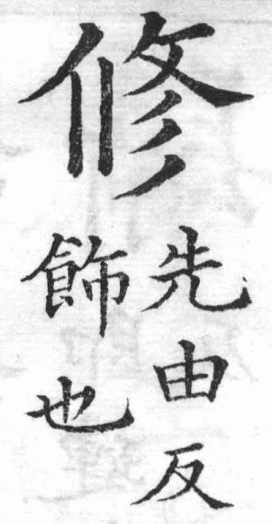 修
先由反
飾也